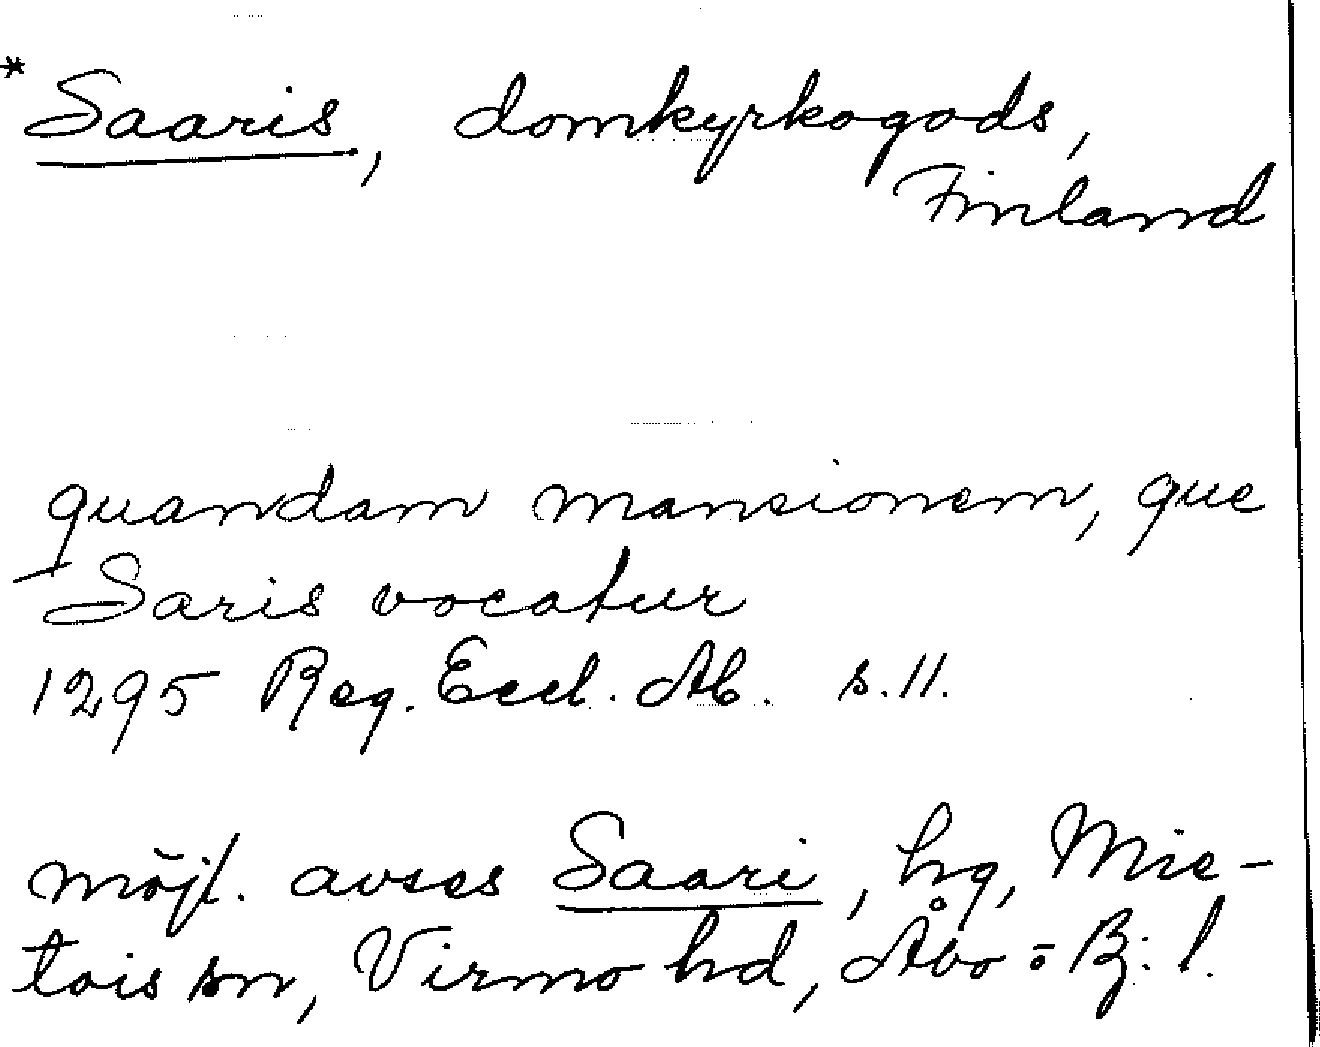 *Saaris, domkyrkogods,
Finland
quandam mansionem, que
Saris vocatur
1295 Reg. Eccl. Ab. s. 11.
möjl. avses Saari, hg, Mie-
tois sn, Virmo hd, Åbo = Bj: l.